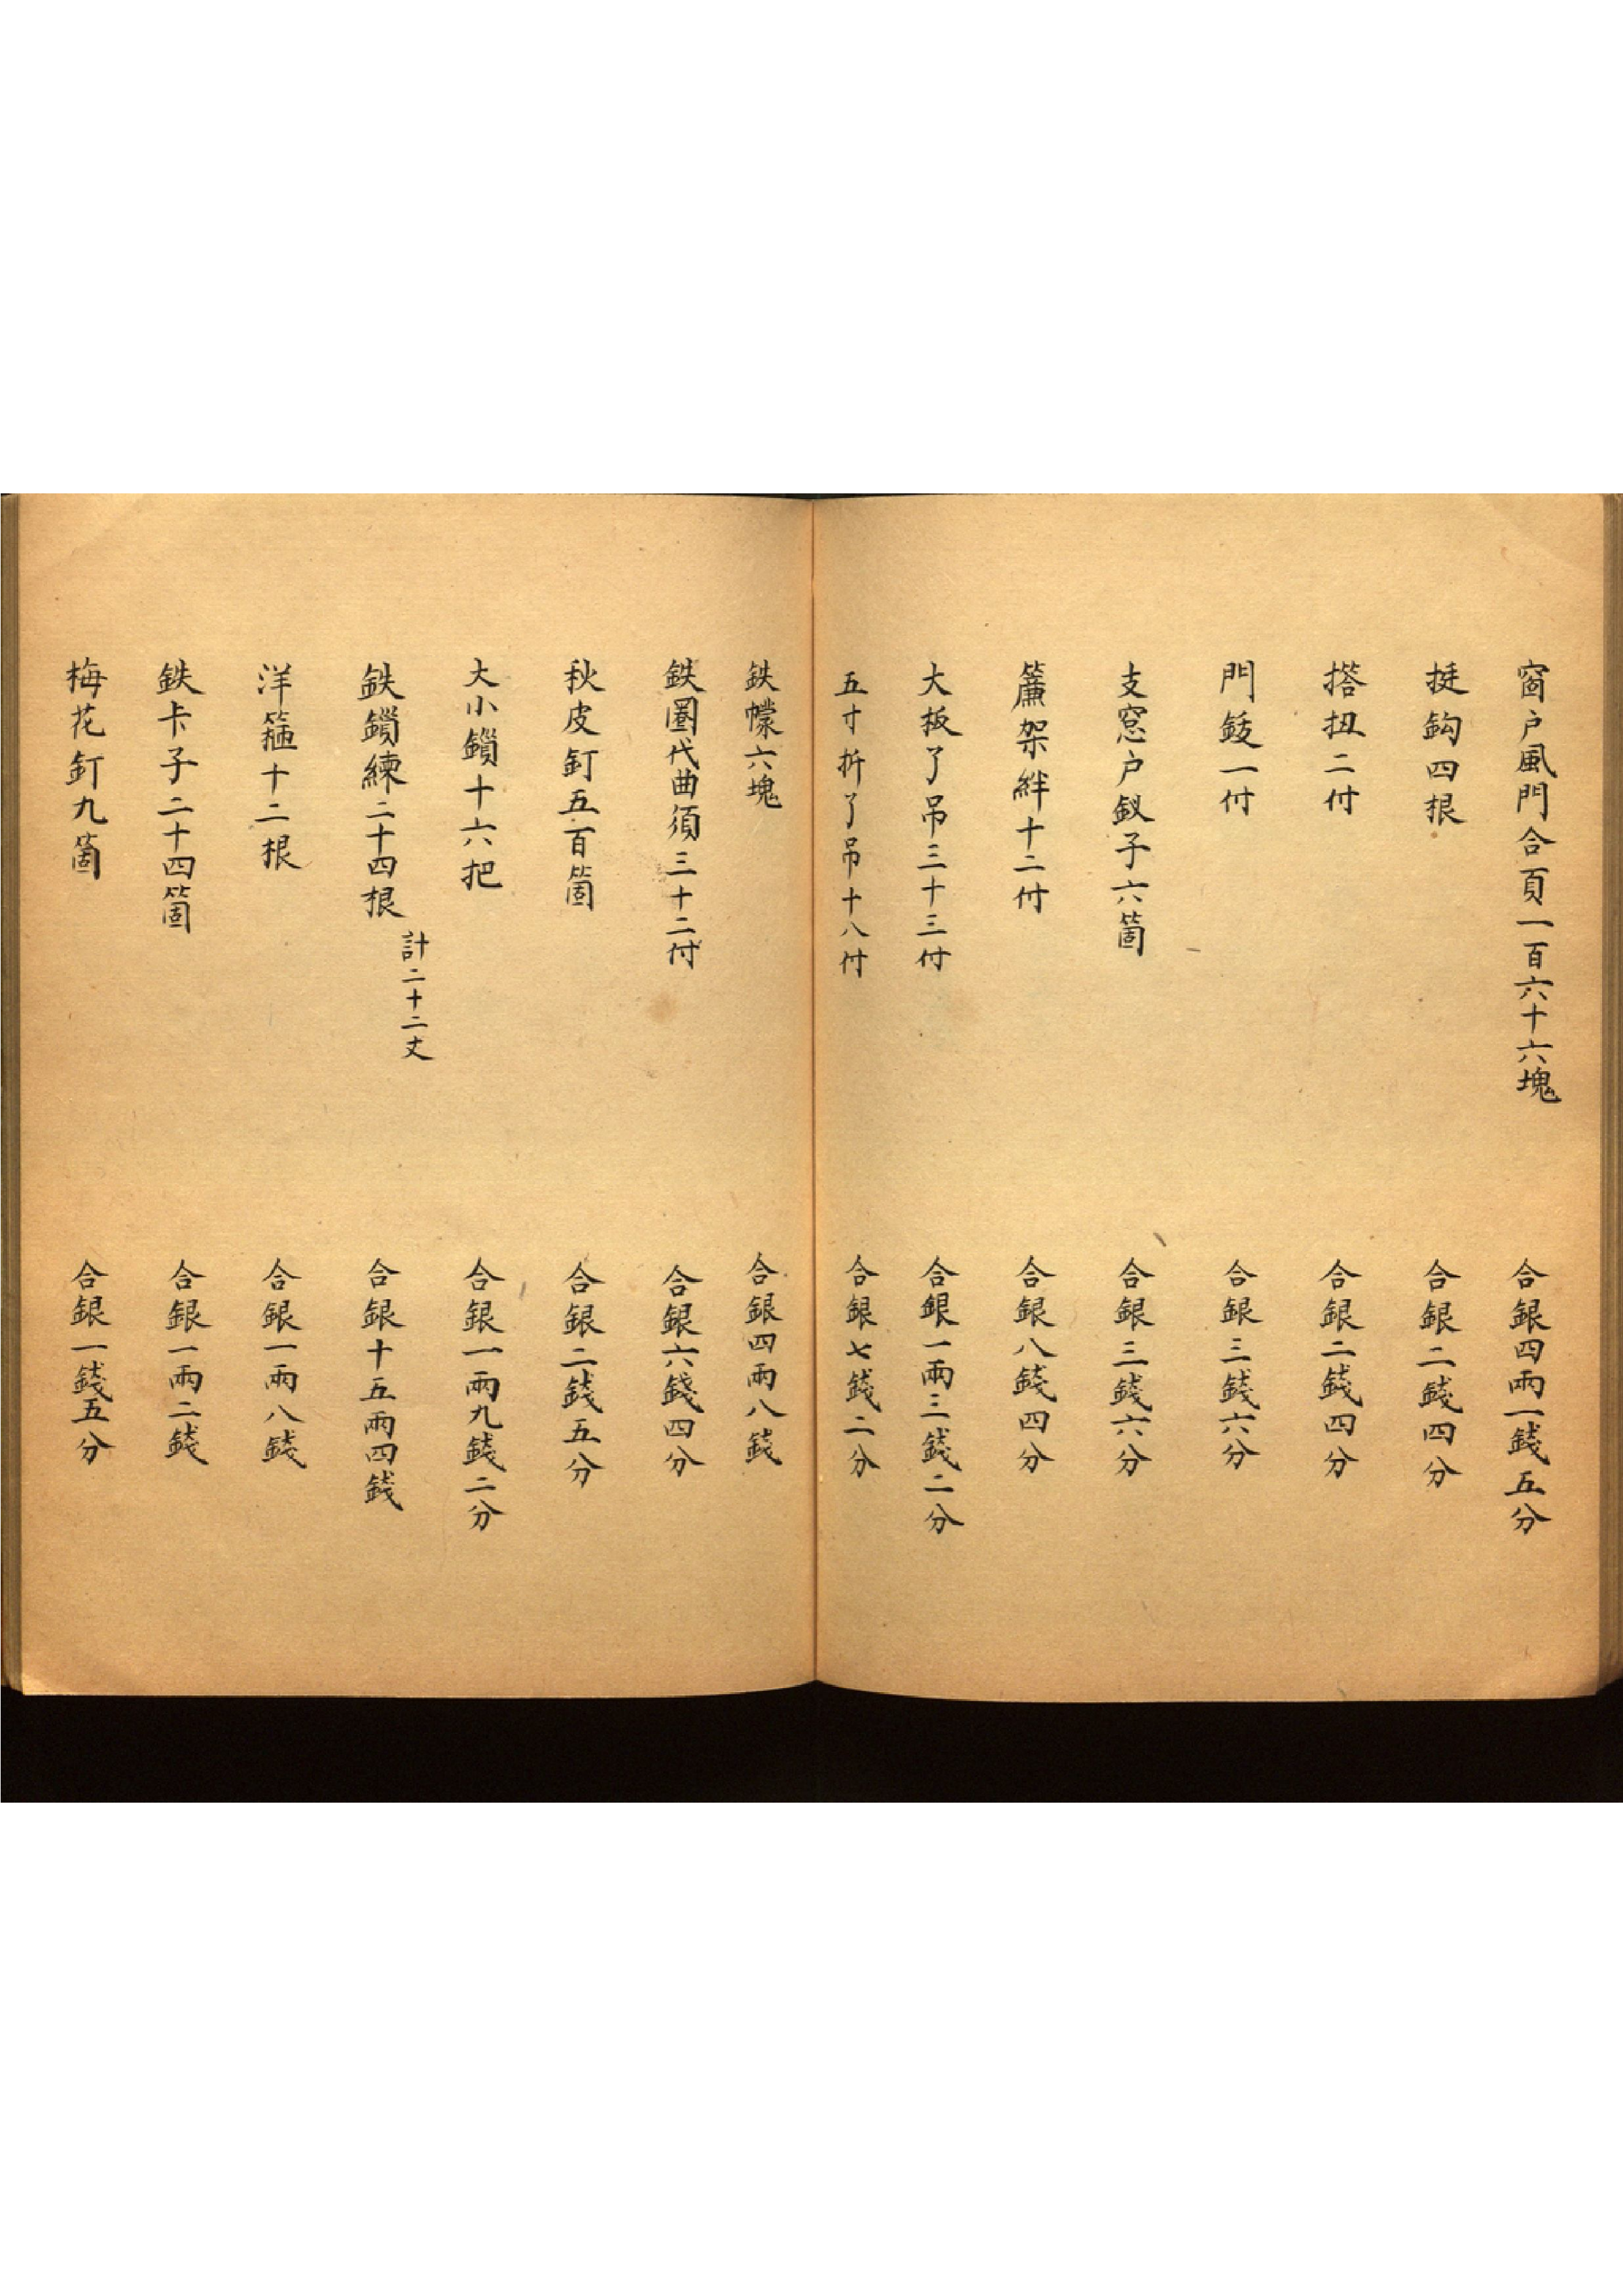 窗户風門合頁一百六十六塊 合銀四兩一錢五分
挺鈎四根 合銀二錢四分
搭扭二付 合銀二錢四分
門鋑一付 合銀三錢六分
支窓户釵子六箇 合銀三錢六分
簾架絆十二付 合銀八錢四分
大板了吊三十三付 合銀一兩三錢二分
五寸折了吊十八付 合銀七錢二分
鉄幪六塊 合銀四兩八錢
鉄圏代曲須三十二付 合銀六錢四分
秋皮釘五百箇 合銀二錢五分
大小鎻十六把 合銀一兩九錢二分
鉄鎻練二十四根 計二十二丈 合銀十五兩四錢
洋箍十二根 合銀一兩八錢
鉄卡子二十四箇 合銀一兩二錢
梅花釘九箇 合銀一錢五分